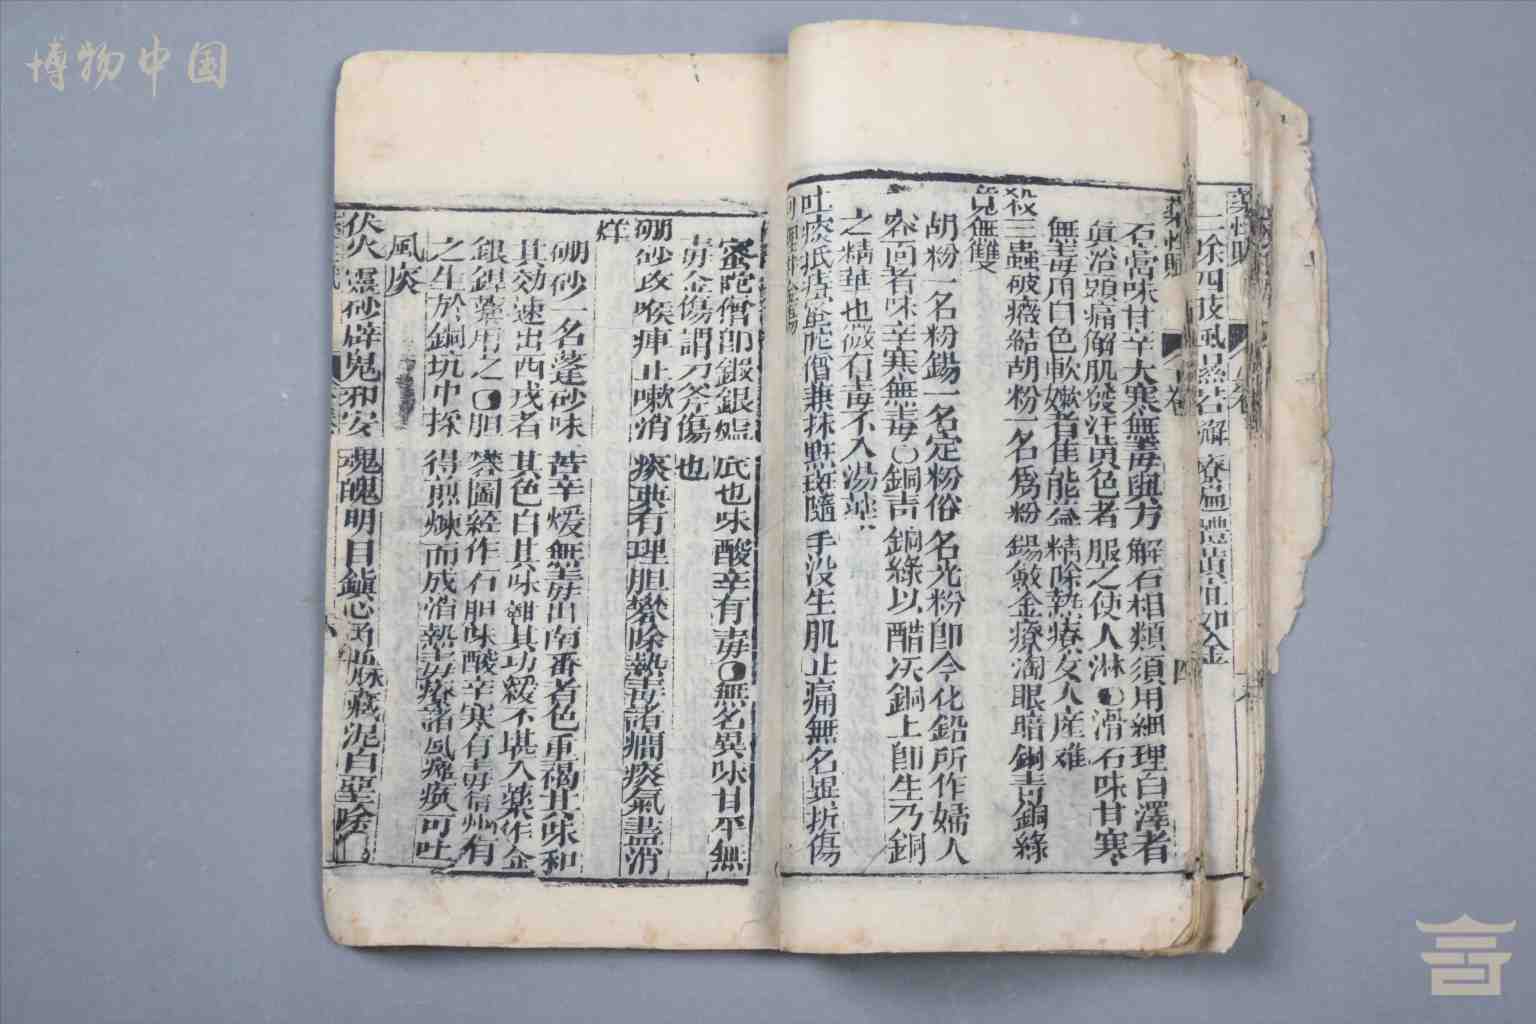 博物中国
藥性賦
二除四肢風
療遍體黃疸如金
藥性賦
石膏味甘辛大寒無毒與方解石相類須用細理白澤者
眞治頭痛解肌發汗黃色者服之使人淋○滑石味甘寒
無毒用白色軟嫩者佳能益精除熱療女人產難
殺三蟲破癥結胡粉一名爲粉錫敏金瘡淘眼暗銅青銅綠
竟無雙
胡粉一名粉錫一名定粉俗名光粉卽今化鉛所作婦人
容面者味辛寒無毒○銅青銅綠以醋沃銅上卽生乃銅
之精華也微有毒不入湯藥
吐痰抵瘧蜜陀僧兼抹㸃斑隨手没生肌止痛無名異折傷
蜜陀僧卽鍛銀爐底也味酸辛有毒○無名異味甘平無
毒金傷謂刀斧傷也
硼砂攻喉痺止嗽消痰典有理胆礬除熱毒諸癇痰氣盡消
烊
硼砂一名蓬砂味苦辛煖無毒出南番者色重褐其味和
其效速出西戎者其色白其味雜其功緩不堪入藥作金
銀銲藥用之○胆礬圖經作石胆味酸辛寒有毒信州有
之生於銅坑中採得煎煉而成消熱毒療諸風癉瘓可吐
風痰
伏火靈砂辟鬼邪安魂魄明目鎮心通血脉藏泥白堊